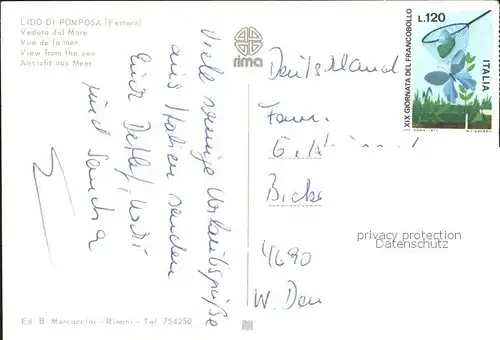 LIDO DI POMPOSA (Ferrara)
Veduta dal Mare
Vue de la mer
View from the sea
Ansicht aus Meer
rima
L.120
XIX GIORNATA DEL FRANCOBOLLO
ITALIA
Viele sonnige Urlaubsgrüße
aus Italien senden
Euch Detlef,
und Sandra
Deutschland
Fam.
4690
privacy protection
Datenschutz
Ed. B. Marcaccini - Rimini - Tel. 754250